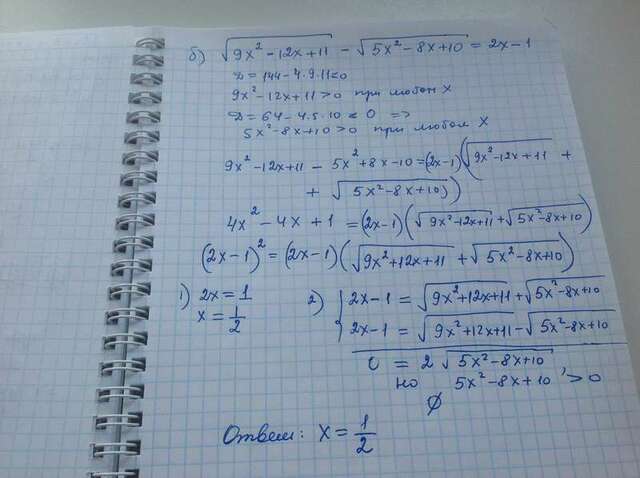 б) √(9x²-12x+11) - √(5x²-8x+10) = 2x-1
D = 144 - 4·9·11<0
9x²-12x+11>0 при любом X
D = 64 - 4·5·10 < 0 =>
5x²-8x+10>0 при любом X
9x²-12x+11 - 5x²+8x-10=(2x-1)(√(9x²-12x+11) +
+ √(5x²-8x+10))
4x²-4x+1 = (2x-1)(√(9x²-12x+11) + √(5x²-8x+10))
(2x-1)² = (2x-1)(√(9x²+12x+11) + √(5x²-8x+10))
1) 2x=1
x=1/2
2) { 2x-1 = √(9x²+12x+11) + √(5x²-8x+10)
2x-1 = √(9x²+12x+11) - √(5x²-8x+10)
0 = 2√(5x²-8x+10),
но 5x²-8x+10 >0
∅
Ответ: X = 1/2